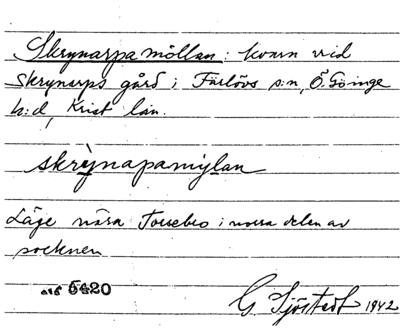 Skrynarpa möllan: kvarn vid
Skrynarps gård i Färlövs s:n, Ö. Göinge
h:d, Krist län.
skrỳnapamylan
Läge nära Torsebro i norra delen av
socknen
ACC 5420
G. Sjöstedt 1942